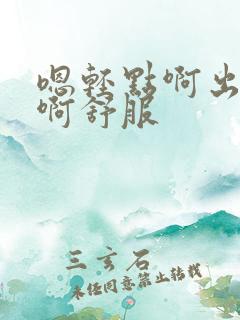 嗯轻點啊出
啊舒服
三玄石
未经同意禁止转载